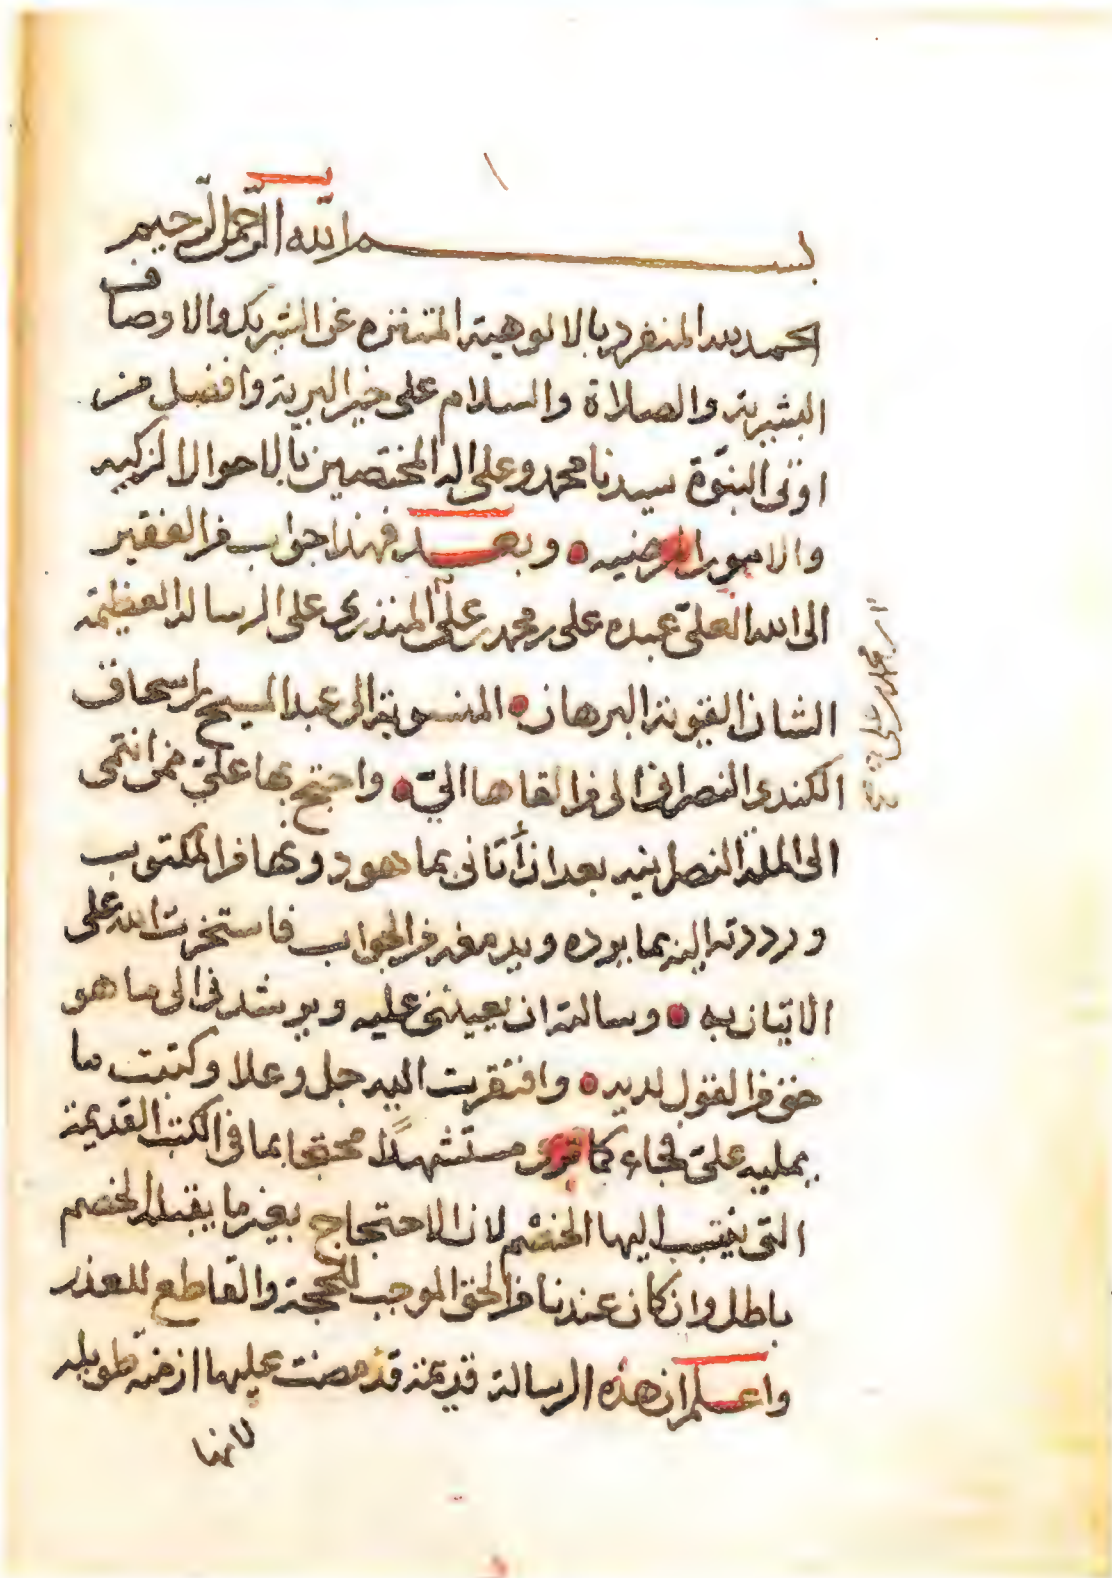 بسم الله الرحمن الرحيم
الحمد لله المنفرد بالالوهية المتنزه عن الشريك والاوصاف
البشرية والصلاة والسلام على خير البرية وافضل من
اوتى النبوّة سيدنا محمد وعلى اله المختصين بالاحوال الزكيه
والامور المرضيه وبعد فهذا جواب من الفقير
الى الله العليّ عبده على بن محمد بن علي المنذري على الرسالة العظيمة
الشان القوية البرهان المنسوبة الى عبد المسيح بن اسحاق
الكندى النصراني الى من القاها اليّ واحتج بها عليّ ممن انتمى
الى الملة النصرانيه بعد ان أتانى بما هو دونها من المكتوب
ورددته اليه بما يرده ويدمغه من الجواب فاستخرت الله على
الاتيان به وسالته ان يعينني عليه ويرشدني الى ما هو
حق من القول لديه وافتقرت اليه جل وعلا وكتبت ما
يمليه عليّ فجاء كما ترى مستشهدًا محتجا بما في الكتب القديمة
التى ينتسب اليها الخصم لان الاحتجاج بغير ما يقبله الخصم
باطل وان كان عندنا من الحق الموجب للحجة والقاطع للعذر
واعلم ان هذه الرسالة قديمة قد مضت عليها ازمنة طويله
لانها
محمد بن علي